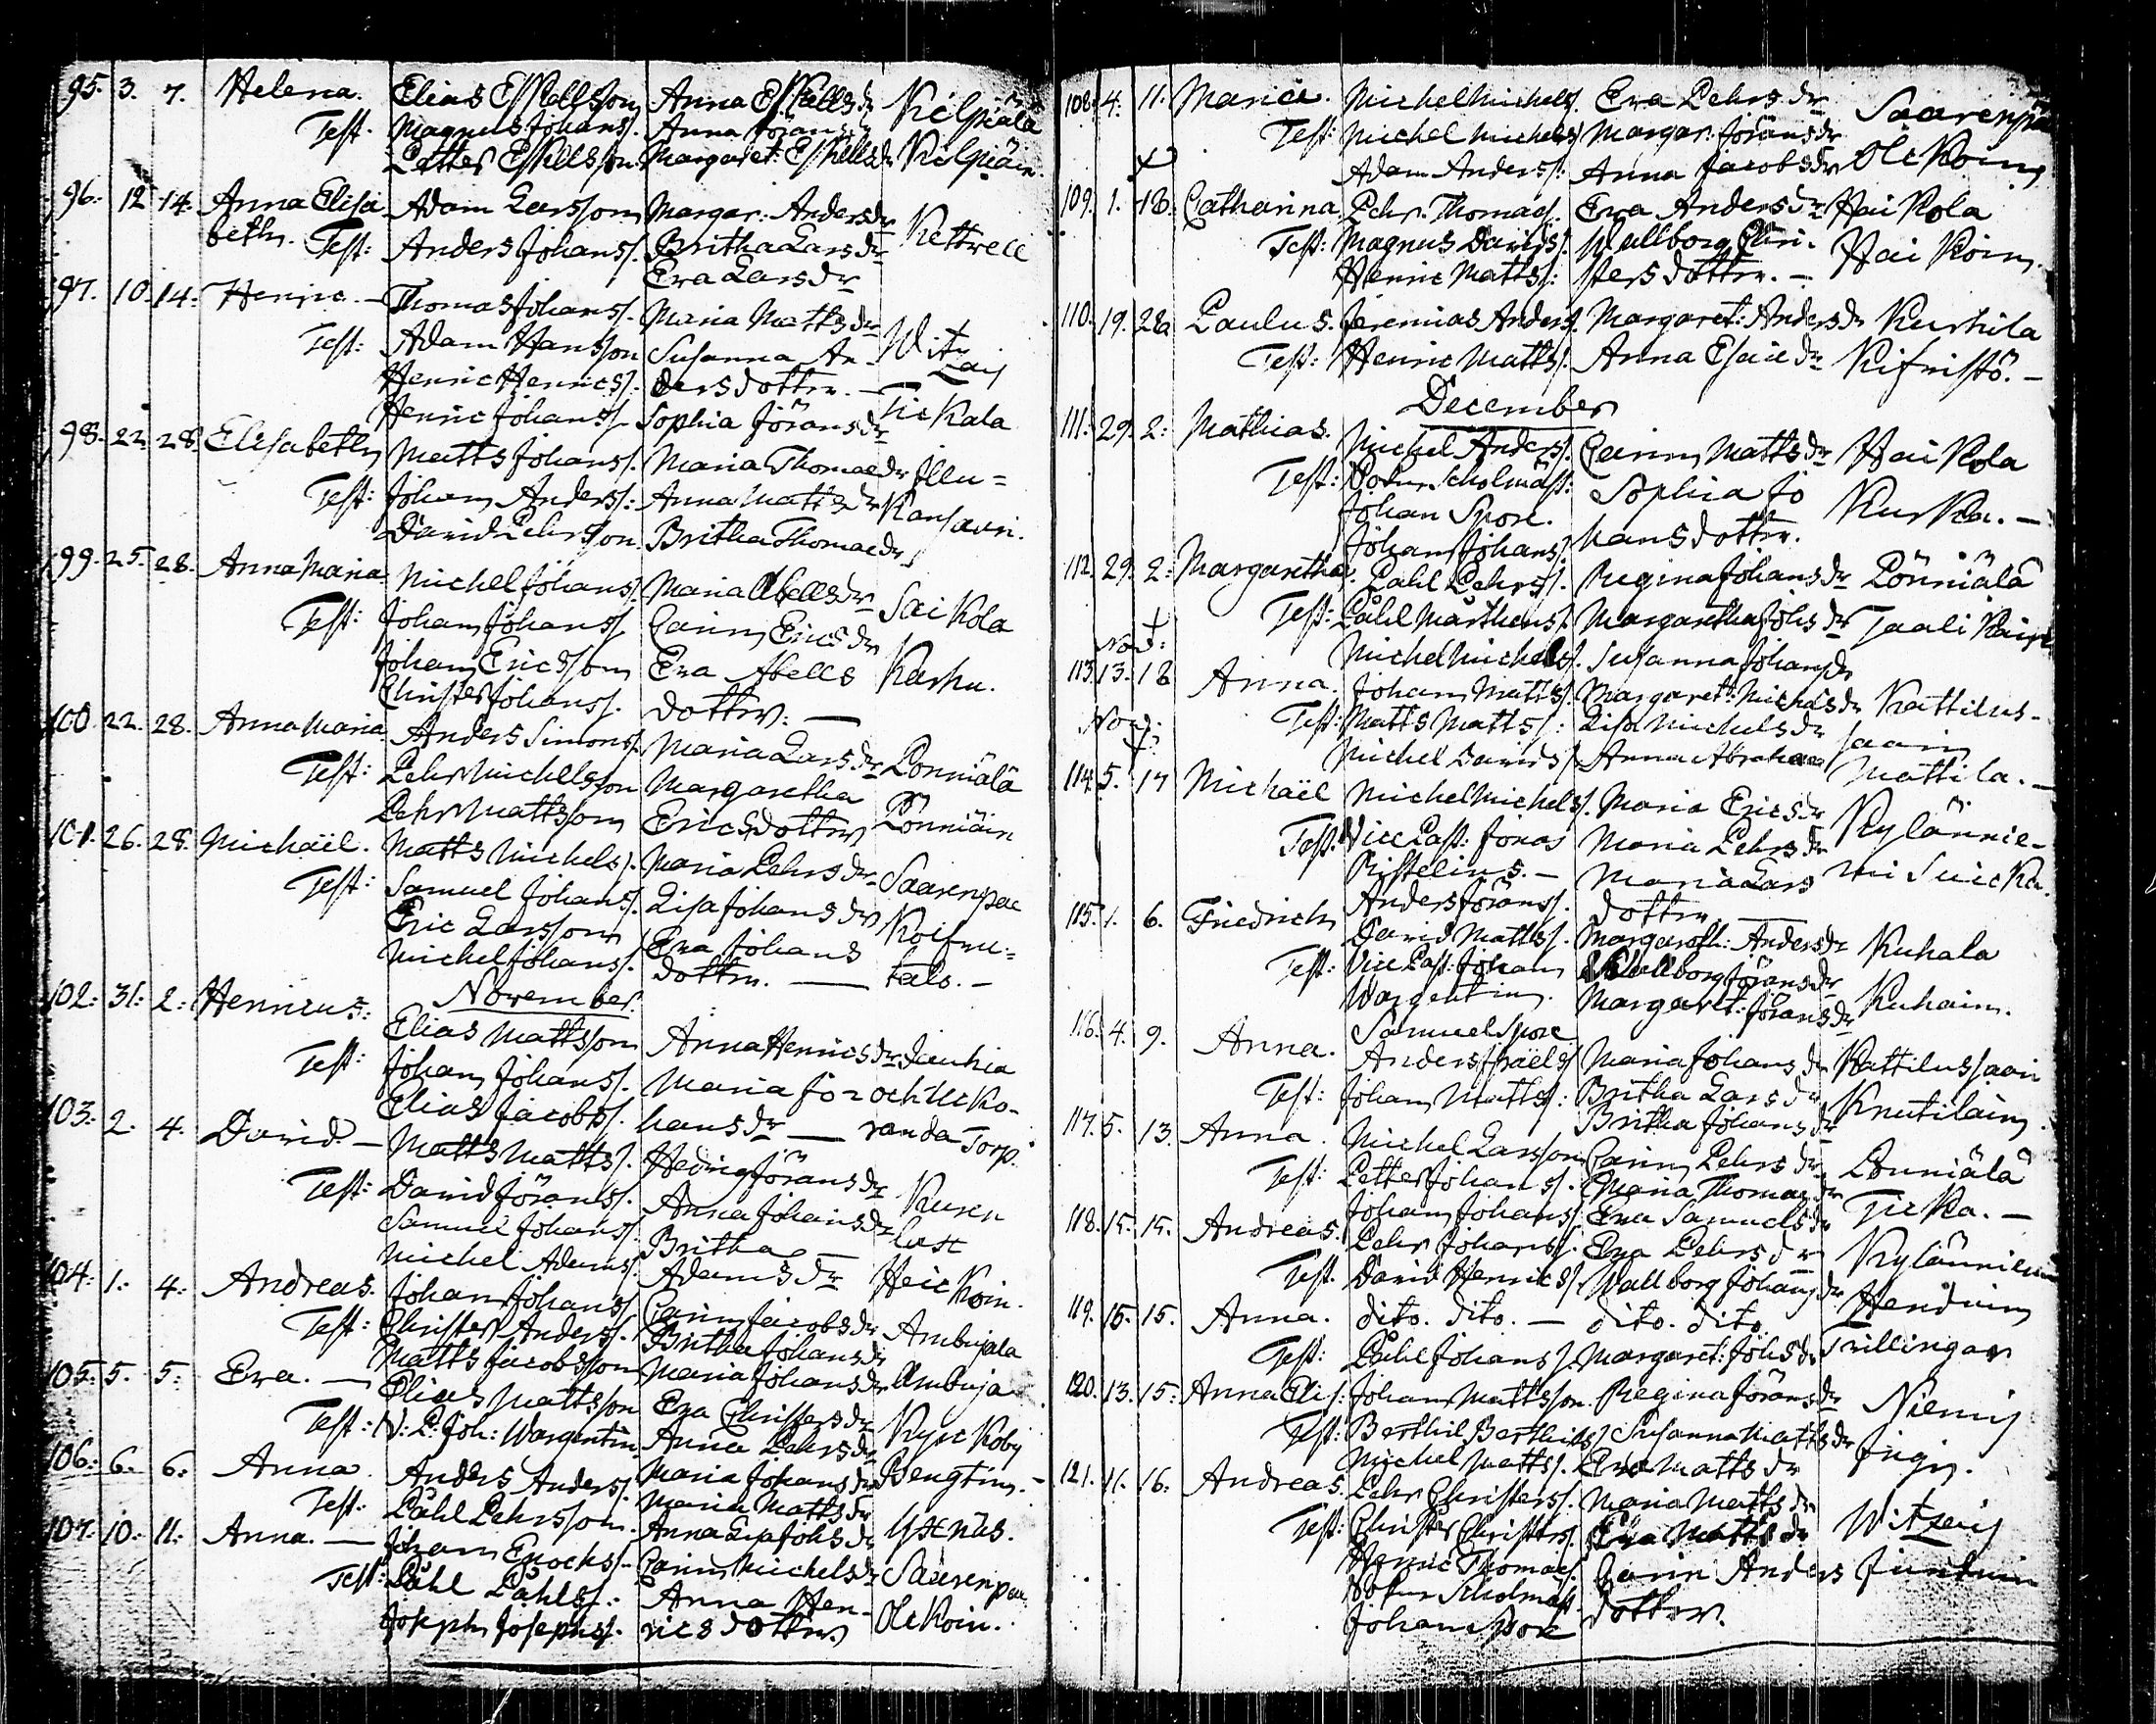 95. 3. 7. Helena. Elias Eskellsson Anna Eskellsdr Kilpiälä
Test. Magnus Johanss. Anna Jöransdr
Petter Eskellsson. Margaret: Eskellsdr Kilpiäin.
96. 12 14. Anna Elisa Adam Larsson Margar: Andersdr Kettrell
beth. Test: Anders Johanss. Britha Larsdr
Eva Larsdr
97. 10. 14. Henric. — Thomas Johanss. Maria Mattsdr Wit
Test: Adam Hansson Susanna An-
Henric Henricss. dersdotter. —
Henric Johanss. Sophia Jöransdr Tickala
98. 22. 28. Elisabeth Matts Johanss. Maria Thomaedr Illu=
Test: Johan Anderss: Anna Mattsdr Kansaari.
David Pehrsson. Britha Thomaedr
99. 25. 28. Anna Maria Michel Johanss. Maria Abellsdr Saikola
Test: Johan Johanss. Carin Ericsdr
Johan Ericsson Eva Abells Karhu.
Christer Johanss. dotter. —
100. 22. 28. Anna Maria. Anders Simonss. Maria Larsdr Ponniälä
Test: Pehr Michelsson Margaretha
Pehr Mattsson Ericsdotter Pönniäin
101. 26. 28. Michaël. Matts Michelss. Maria Pehrsdr Saarenpae
Test: Samuel Johanss. Lisa Johansdr
Eric Larsson Eva Johans
Michel Johanss. dotter. — talo. —
November.
102: 31: 2: Henricus: Elias Mattsson Anna Henricsdr Jauhia
Test: Johan Johanss. Maria Jo= och Ucko-
Elias Jacobss. hansdr — randa Torp.
103. 2. 4. David. — Matts Mattss. Hedvig Jöransdr
Test: David Jöranss. Anna Johansdr
Samuel Johanss: Britha —
Michel Adamss. Adamsdr Heickoin.
104: 1: 4: Andreas. Johan Johanss. Carin Jacobsdr Ambujala
Test: Christer Anderss. Britha Johansdr
Matts Jacobsson Maria Johansdr Ambuja
105: 5. 5: Eva. — Elias Mattsson Eva Christersdr
Test: V: P: Joh: Wargentin Anna Pehrsdr
106: 6. 6: Anna. Anders Anderss. Maria Johansdr Bengtin. —
Test. Påhl Pehrsson. Maria Mattsdr
107. 10: 11: Anna. — Johan Enochss. Anna Lisa Johsdr
Test: Påhl Påhlss. Carin Michelsdr Saarenpaa
Joseph Josephss. Anna Hen-
ricsdotter. Olckoin.
108. 4. 11: Maria. Michel Michelss. Eva Pehrsdr Saarenpä
Test: Michel Michelss. Margar: Jöransdr
Adam Anderss: Anna Jacobsdr Olckoin
109. 1. 18. Catharina Pehr Thomass. Eva Andersdr Haikola
Test: Magnus Davidss. Wallborg Chri-
Henric Mattss: stersdotter. — Haikoin.
110. 19. Paulus. Jeremias Anderss. Margaret: Andersdr Kurhila
Test: Henric Mattss. Anna Esaiedr
December
111. 29. 2: Mathias. Michel Anderss. Carin Mattsdr Haikola
Test: Sokn Scholmäst: Sophia Jo
Johan Spore. hansdotter. Kurka. —
Johan Johanss.
112. 29. 2: Margaretha. Påhl Pehrss. Regina Johansdr Pönniälä
Test: Påhl Mårthenss. Margaretha Johsdr
Michel Michelss. Susanna Johansdr
Nov:
113. 13. 18 Anna. Johan Mattss. Margaret: Michelsdr Kattilus-
Test: Matts Mattss: Lisa Michelsdr saari
Michel Davidss. Anna Abraham Mattila. —
Nov:
114. 5. 17 Michaël Michel Michelss. Maria Ericsdr Kylännie-
Test. Vice Past: Jonas Maria Pehrsdr mi
Ristelius. — Maria Lars
Anders Jöranss. dotter. —
115. 1. 6. Friedrich David Mattss. Margareth: Andersdr Kuhala
Test: Vice Past: Johan Wallborg Jöransdr
Wargentin. Margaret: Jöransdr Kuhain.
Samuel Spore
116. 4. 9. Anna. Anders Israëlss. Maria Johansdr Kattilussaari
Test: Johan Mattss: Britha Larsdr Knutilain
Britha Johansdr
117. 5. 13. Anna. Michel Larsson Carin Pehrsdr Ponniälä
Test: Petter Johanss. Maria Thomaedr
Johan Johanss. Eva Samuelsdr Ticka. —
118. 15. 15. Andreas. Pehr Johanss. Eva Pehrsdr Kylänniemi
Test. David Henricss. Wallborg Johansdr
119. 15. 15. Anna. dito. dito. — dito. dito
Test: Påhl Johanss. Margaret: Johsdr Trillingar
120. 13. 15: Anna Elis: Johan Mattsson. Regina Jöransdr Niemis
Test: Berthil Berthilss. Susanna Mattsdr
Michel Mattss. Eva Mattsdr
121. 11. 16. Andreas. Pehr Christerss. Maria Mattsdr
Test: Christer Christerss. Eva Mattsdr
Henric Thomass. Carin Anders
Sokne Scholmäst dotter.
Johan Spore